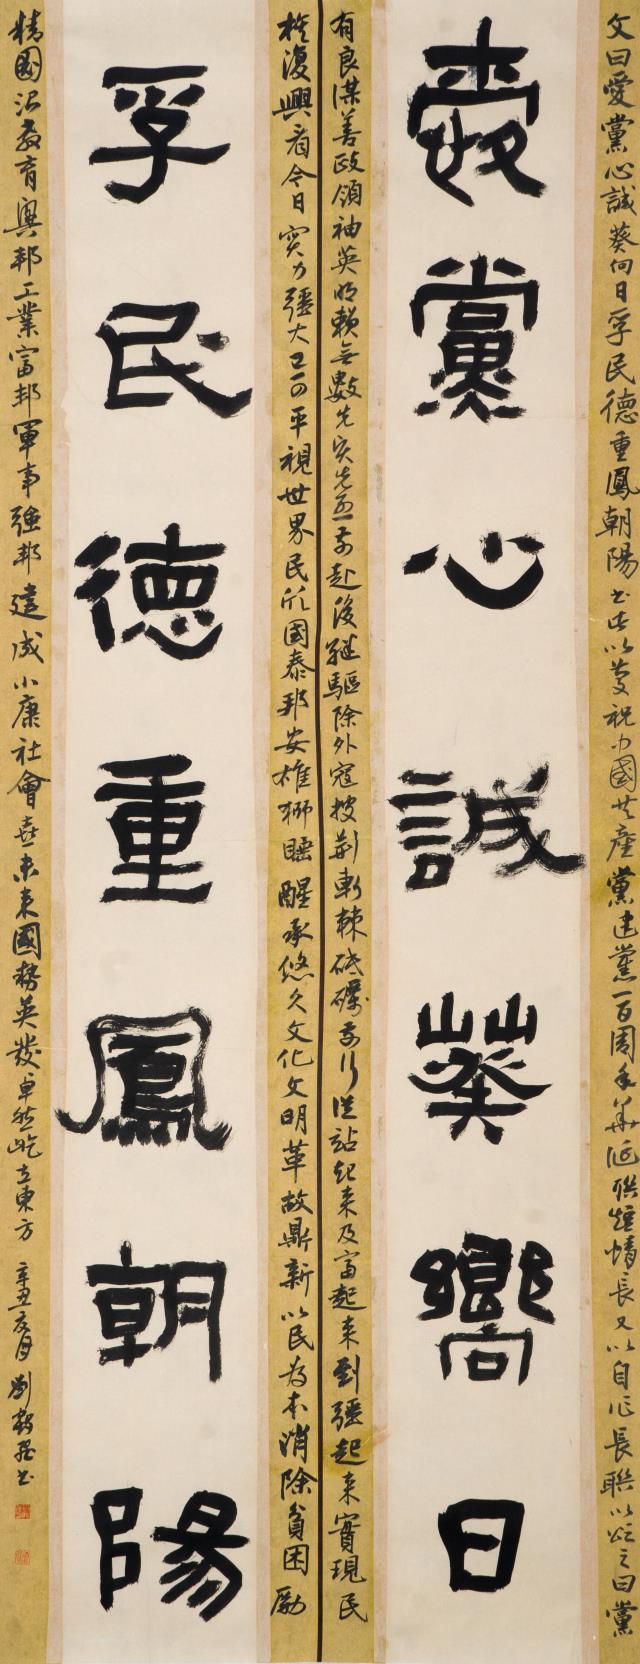 愛黨心誠葵嚮日
孚民德重鳳朝陽
文曰愛黨心誠葵向日孚民德重鳳朝陽書此以慶祝中國共產黨建黨一百周年華誕聯短情長又以自作長聯以頌之曰黨
有良謀善政領袖英明賴無數先賢先烈前赴後繼驅除外寇披荊斬棘砥礪前行從站起來及富起來到疆起來實現民
族復興看今日實力疆大已可平視世界民欣國泰邦安雄獅睡醒承悠久文化文明革故鼎新以民為本消除貧困勵
精國治教育興邦工業富邦軍事強邦建成小康社會喜未來國勢英發卓然屹立東方 辛丑 月 劉 書